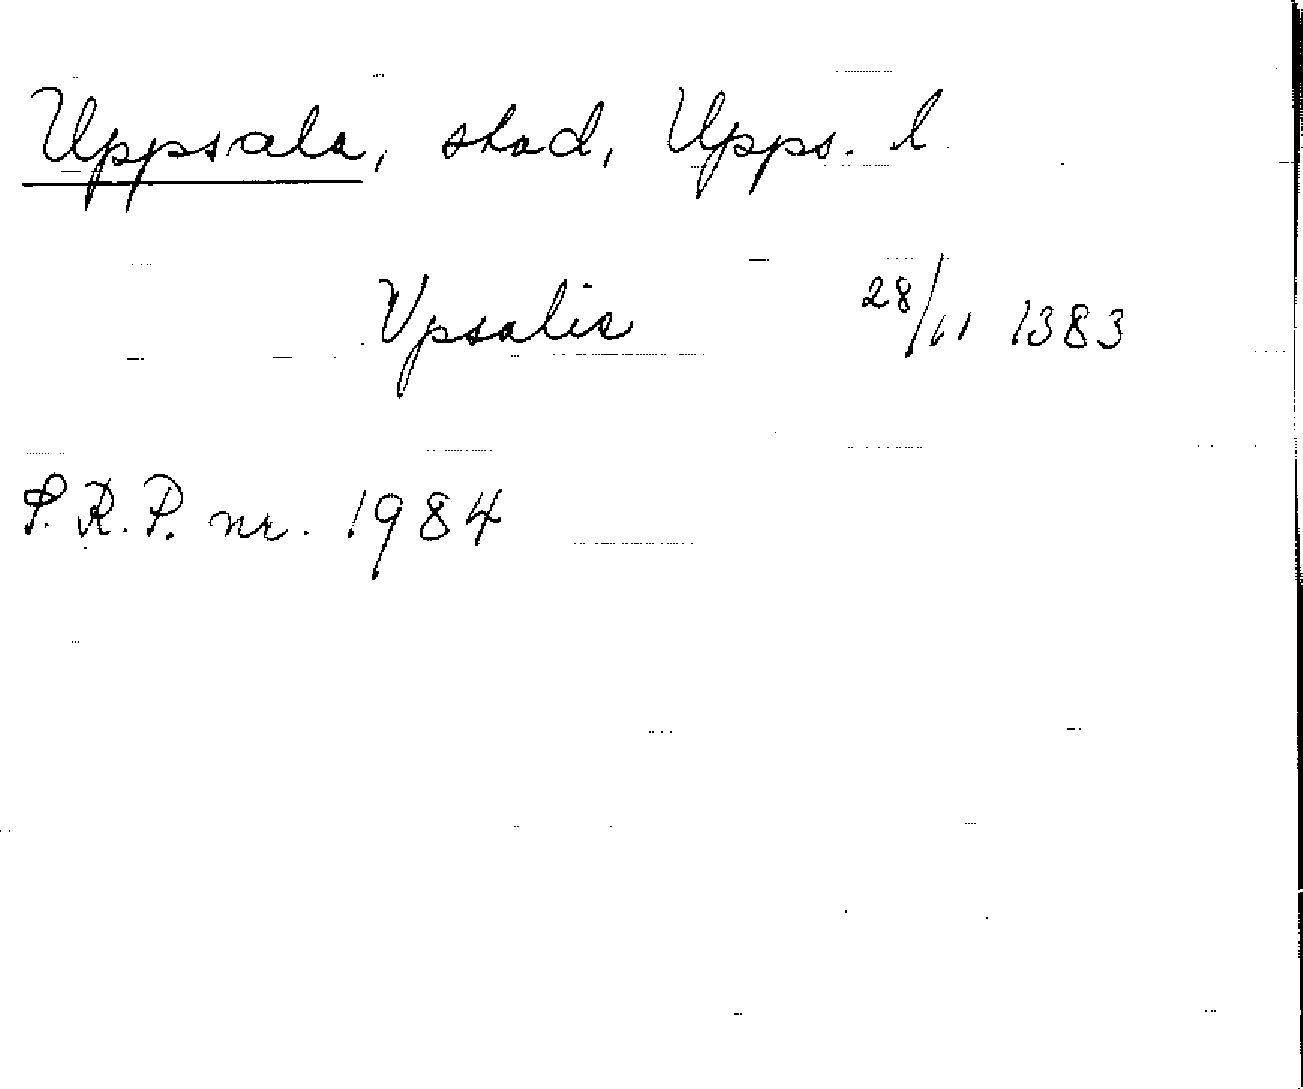 Uppsala, stad, Upps. l
Vpsalis 28/11 1383
S.R.P. nr. 1984